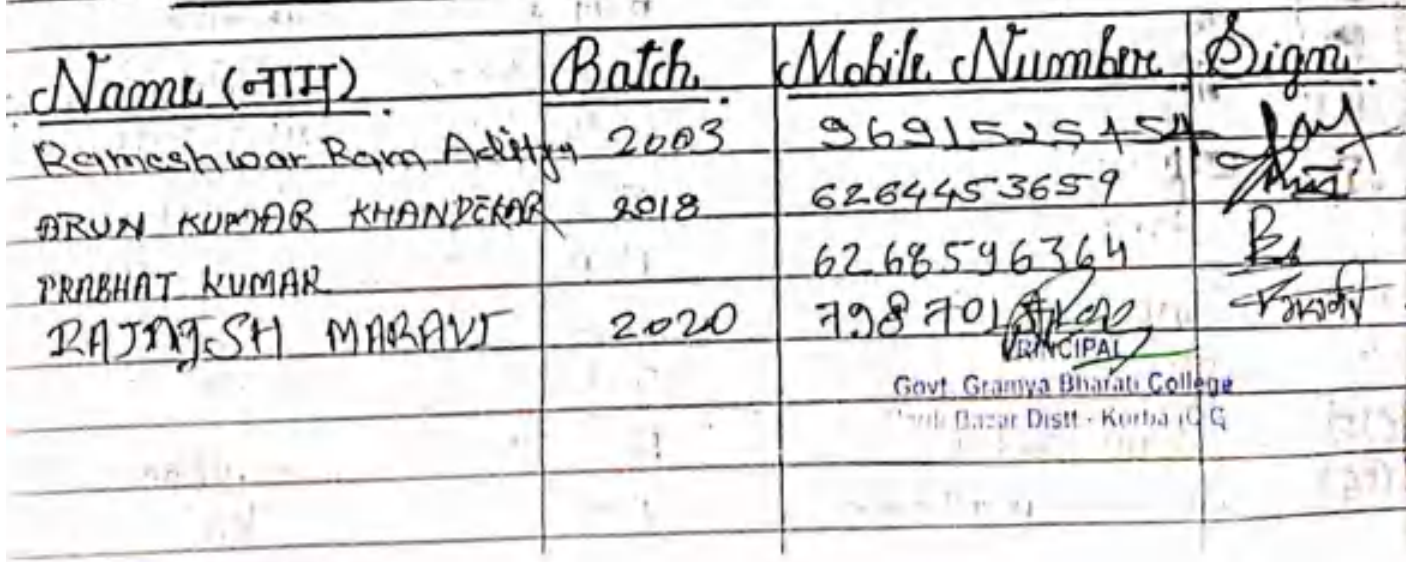 Name (नाम). Batch. Mobile Number Sign.
Rameshwar Ram Aditya 2003
ARUN KUMAR KHANDEKAR 2018 6264453659
PRABHAT KUMAR 6268596364
RAJNESH MARAVI 2020
PRINCIPAL
Govt. Gramya Bharati College
Bazar Distt - Korba